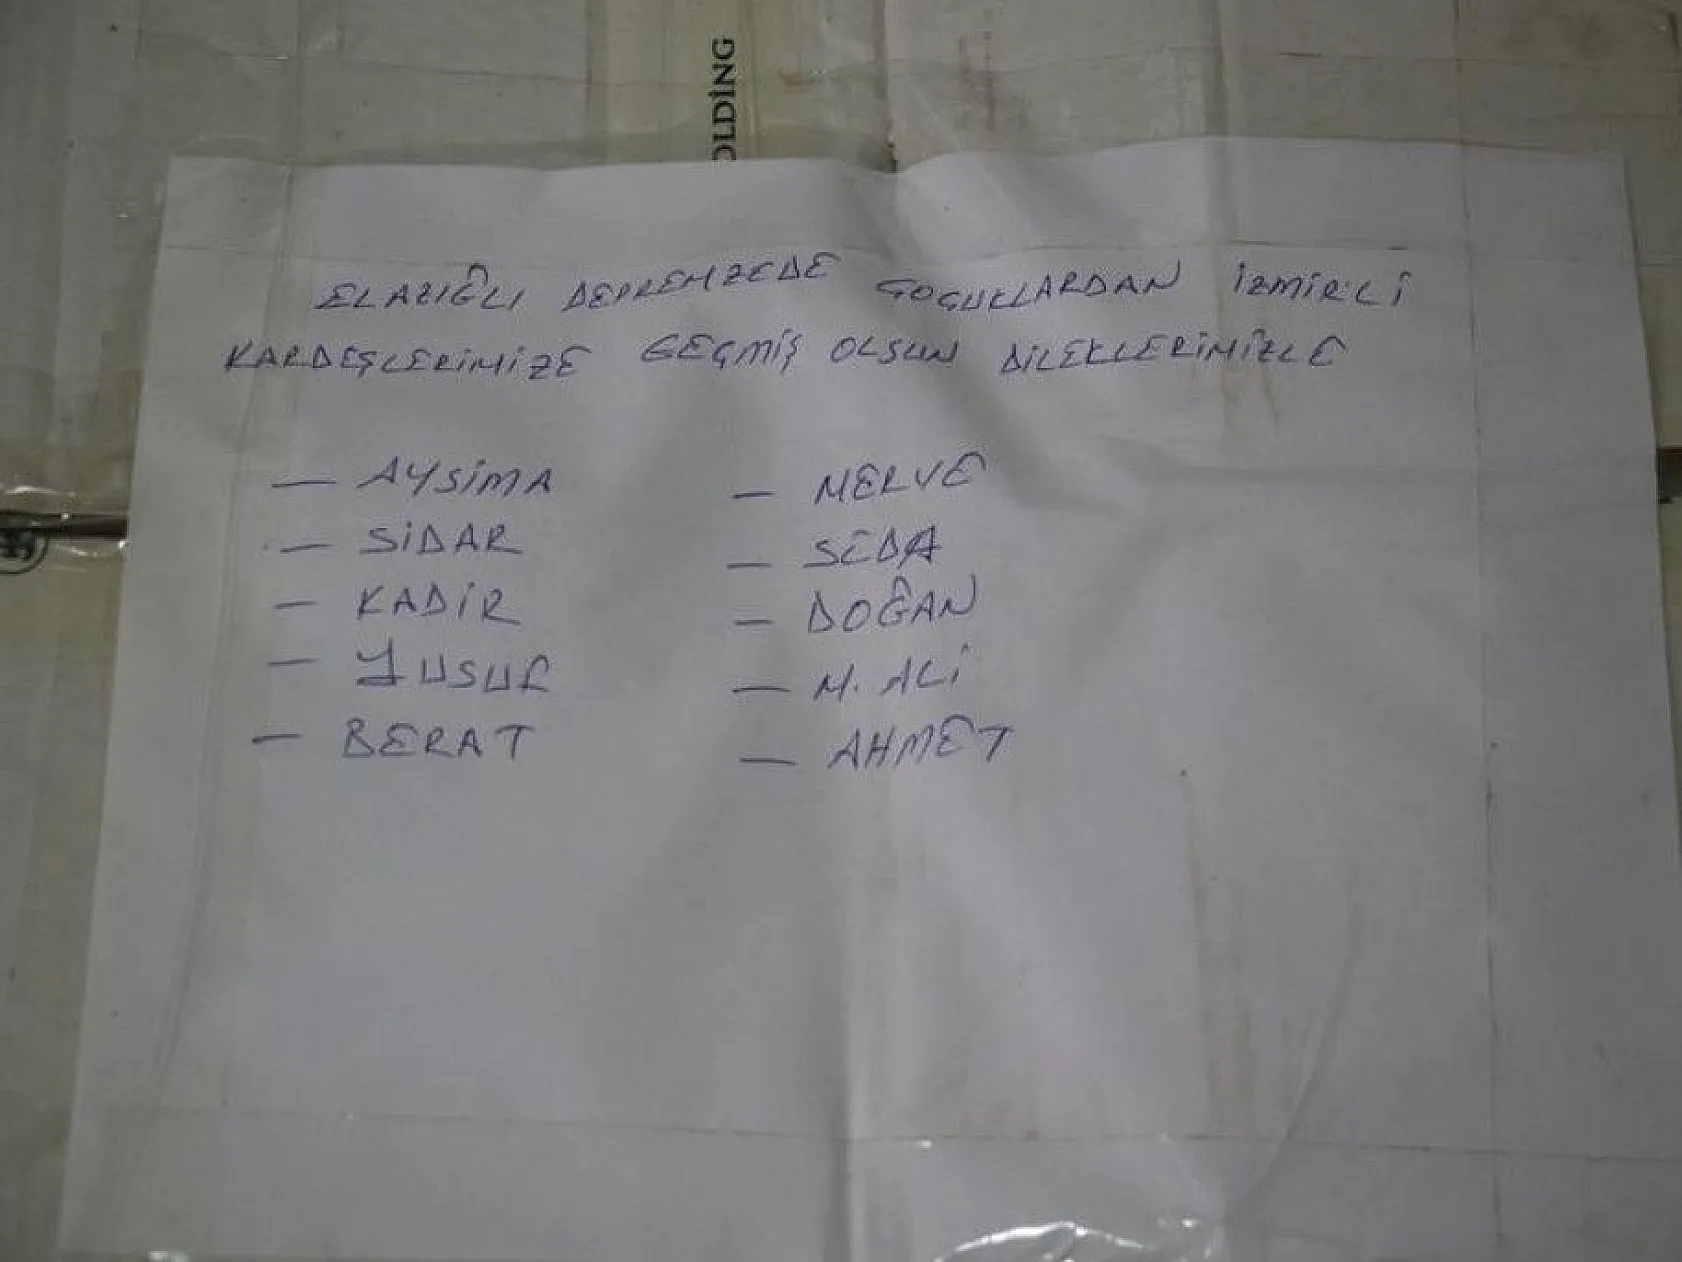 OLDİNG
ELAZIĞLI DEPREMZEDE ÇOÇUKLARDAN İZMİRLİ
KARDEŞLERİMİZE GEÇMİŞ OLSUN DİLEKLERİMİZLE
— AYSİMA
— SİDAR
— KADİR
— YUSUF
— BERAT
— MERVE
— SEDA
— DOĞAN
— M. ALİ
— AHMET